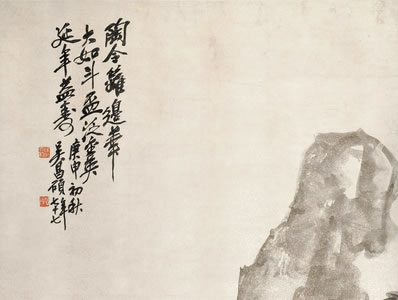 陶令籬邊華
大如斗盃泛英
延年益壽
庚申初秋
吳昌碩年七十七